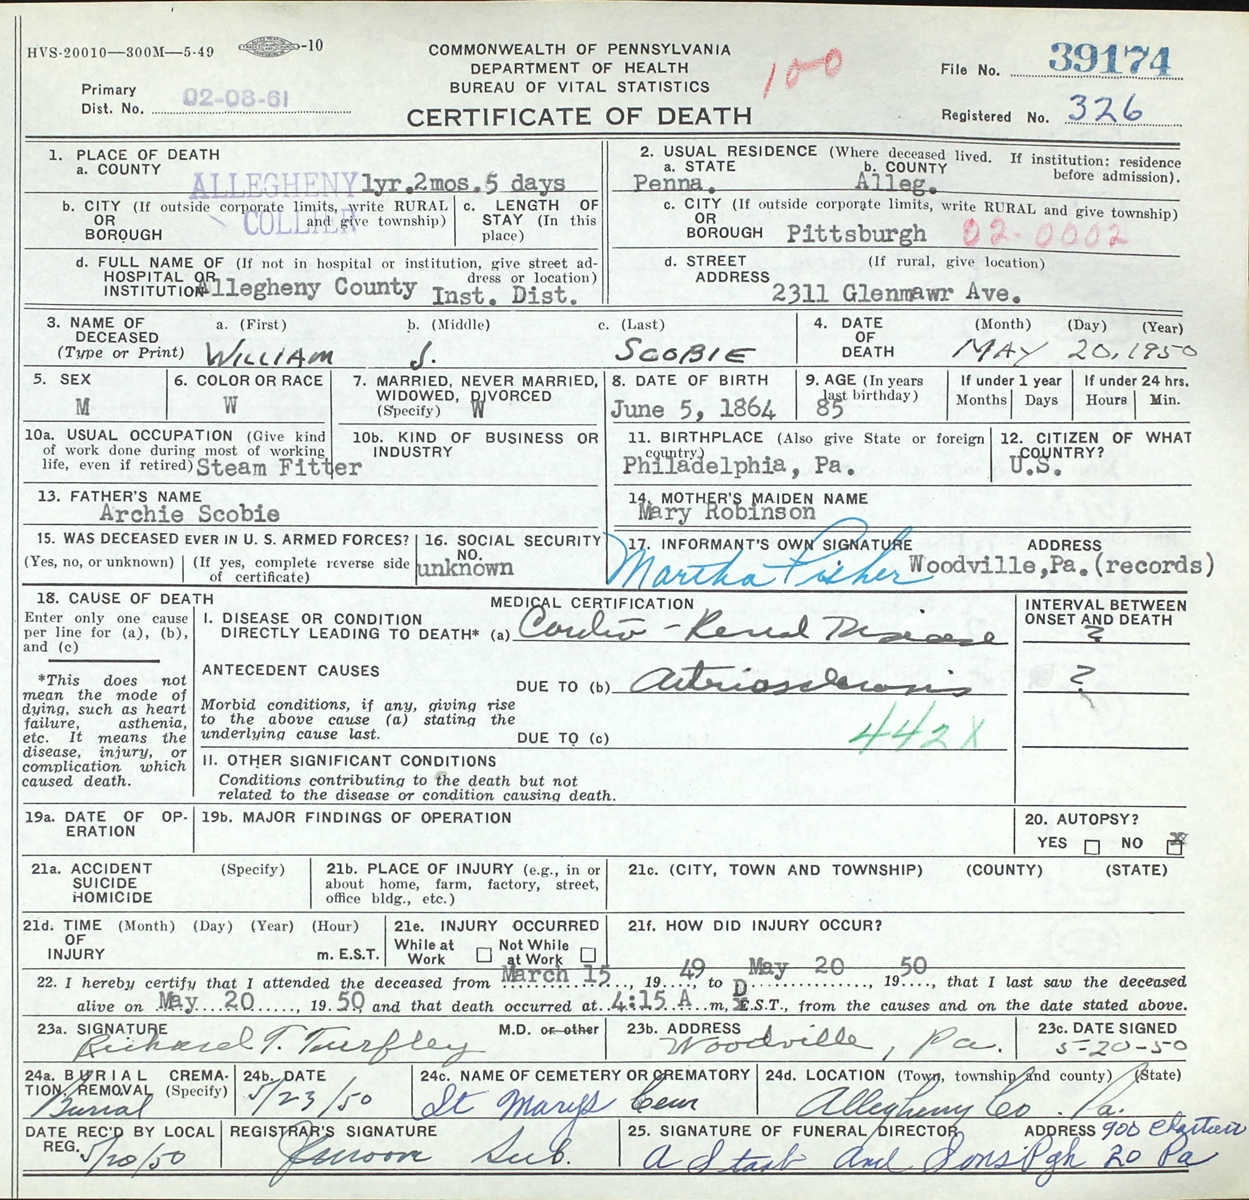 HVS-20010—300M—5-49 -10
COMMONWEALTH OF PENNSYLVANIA
DEPARTMENT OF HEALTH
BUREAU OF VITAL STATISTICS
CERTIFICATE OF DEATH
100
File No. 39174
Primary
Dist. No. 02-08-61
Registered No. 326
1. PLACE OF DEATH
a. COUNTY
ALLEGHENY 1yr.2mos.5 days
b. CITY (If outside corporate limits, write RURAL
OR and give township)
BOROUGH
COLLIER
c. LENGTH OF
STAY (In this
place)
d. FULL NAME OF (If not in hospital or institution, give street ad-
HOSPITAL OR dress or location)
INSTITUTION Allegheny County Inst. Dist.
2. USUAL RESIDENCE (Where deceased lived. If institution: residence
before admission).
a. STATE b. COUNTY
Penna. Alleg.
c. CITY (If outside corporate limits, write RURAL and give township)
OR
BOROUGH Pittsburgh 02-0002
d. STREET (If rural, give location)
ADDRESS
2311 Glenmawr Ave.
3. NAME OF a. (First) b. (Middle) c. (Last)
DECEASED
(Type or Print) WILLIAM J. SCOBIE
4. DATE (Month) (Day) (Year)
OF
DEATH MAY 20, 1950
5. SEX
M
6. COLOR OR RACE
W
7. MARRIED, NEVER MARRIED,
WIDOWED, DIVORCED
(Specify) W
8. DATE OF BIRTH
June 5, 1864
9. AGE (In years
last birthday)
85
If under 1 year
Months Days
If under 24 hrs.
Hours Min.
10a. USUAL OCCUPATION (Give kind
of work done during most of working
life, even if retired) Steam Fitter
10b. KIND OF BUSINESS OR
INDUSTRY
11. BIRTHPLACE (Also give State or foreign
country)
Philadelphia, Pa.
12. CITIZEN OF WHAT
COUNTRY?
U.S.
13. FATHER'S NAME
Archie Scobie
14. MOTHER'S MAIDEN NAME
Mary Robinson
15. WAS DECEASED EVER IN U. S. ARMED FORCES?
(Yes, no, or unknown) (If yes, complete reverse side
of certificate)
16. SOCIAL SECURITY
NO.
unknown
17. INFORMANT'S OWN SIGNATURE ADDRESS
Martha Fisher Woodville,Pa.(records)
18. CAUSE OF DEATH
Enter only one cause
per line for (a), (b),
and (c)
*This does not
mean the mode of
dying, such as heart
failure, asthenia,
etc. It means the
disease, injury, or
complication which
caused death.
MEDICAL CERTIFICATION
I. DISEASE OR CONDITION
DIRECTLY LEADING TO DEATH* (a) Cardio-Renal Disease
ANTECEDENT CAUSES
DUE TO (b) Arteriosclerosis
Morbid conditions, if any, giving rise
to the above cause (a) stating the
underlying cause last.
DUE TO (c)
442X
II. OTHER SIGNIFICANT CONDITIONS
Conditions contributing to the death but not
related to the disease or condition causing death.
INTERVAL BETWEEN
ONSET AND DEATH
?
?
19a. DATE OF OP-
ERATION
19b. MAJOR FINDINGS OF OPERATION
20. AUTOPSY?
YES NO X
21a. ACCIDENT (Specify)
SUICIDE
HOMICIDE
21b. PLACE OF INJURY (e.g., in or
about home, farm, factory, street,
office bldg., etc.)
21c. (CITY, TOWN AND TOWNSHIP) (COUNTY) (STATE)
21d. TIME (Month) (Day) (Year) (Hour)
OF
INJURY m. E.S.T.
21e. INJURY OCCURRED
While at Not While
Work at Work
21f. HOW DID INJURY OCCUR?
22. I hereby certify that I attended the deceased from March 15, 1949, to May 20, 1950, that I last saw the deceased
alive on May 20, 1950, and that death occurred at 4:15 A m, D.S.T., from the causes and on the date stated above.
23a. SIGNATURE M.D. or other
Richard T. Turfley
23b. ADDRESS
Woodville, Pa.
23c. DATE SIGNED
5-20-50
24a. BURIAL CREMA-
TION, REMOVAL (Specify)
Burial
24b. DATE
5/23/50
24c. NAME OF CEMETERY OR CREMATORY
St Marys Cem
24d. LOCATION (Town, township and county) (State)
Allegheny Co. Pa.
DATE REC'D BY LOCAL
REG. 5/20/50
REGISTRAR'S SIGNATURE
Sub.
25. SIGNATURE OF FUNERAL DIRECTOR ADDRESS 900
and Sons Pgh 20 Pa